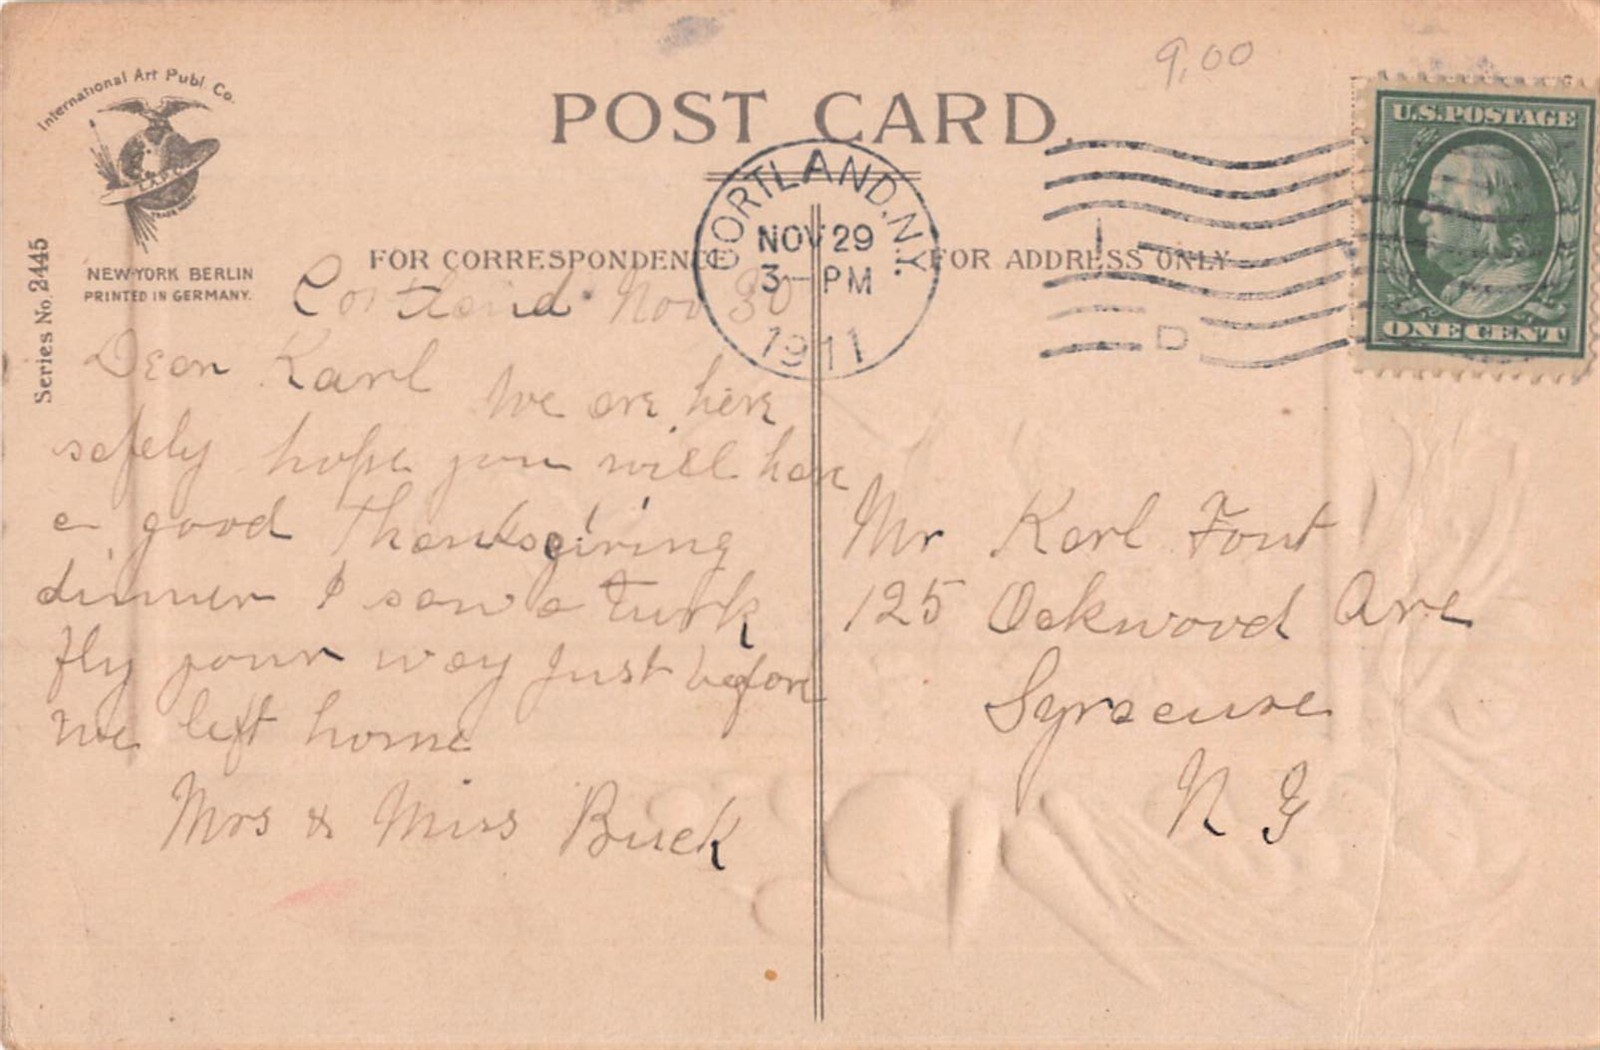 9.00
International Art Publ. Co.
POST CARD.
U.S.POSTAGE
ONE CENT
CORTLAND, N.Y.
NOV 29
3 - PM
1911
1
D
I.A.P.C.
TRADE MARK
NEW-YORK BERLIN
PRINTED IN GERMANY.
Series No. 2445
FOR CORRESPONDENCE
FOR ADDRESS ONLY
Cortland Nov 30
Dear Karl
We are here
safely hope you will have
a good Thanksgiving
dinner I saw a turk
fly your way just before
we left home
Mrs & Miss Buck
Mr Karl Fout
125 Oakwood Ave
Syracuse
N Y